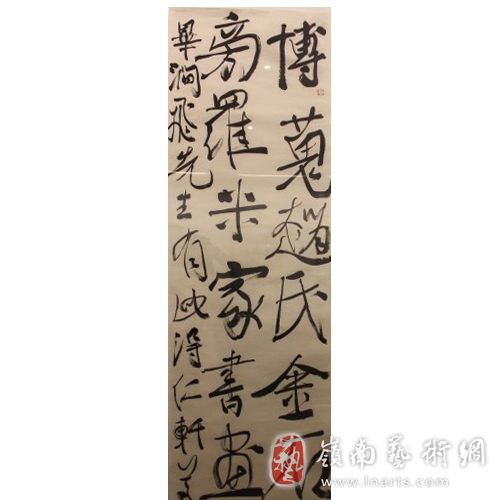 博蒐趙氏金石
旁羅米家書畫
畢澗飛先生有此得仁軒
藝
嶺南藝術網
www.lnarts.com